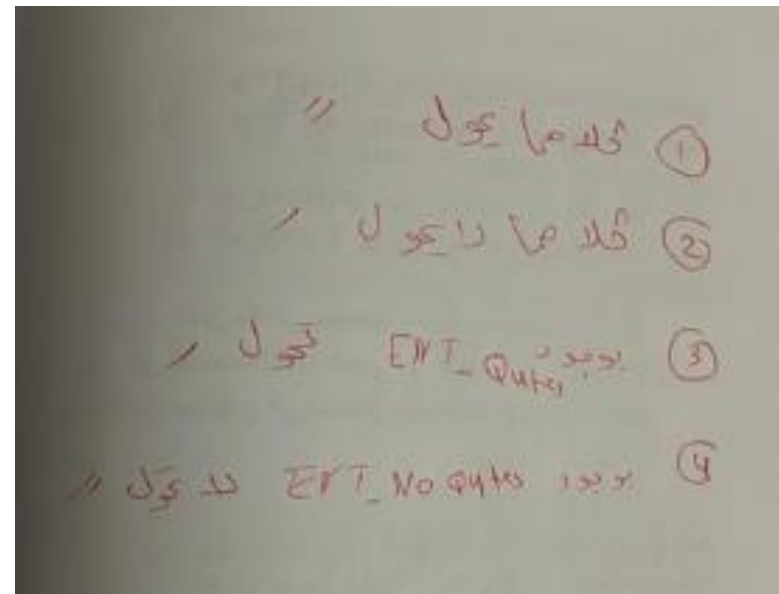 ① كلاهما يحول "
② كلاهما لا يحول '
③ بوجود ENT_Qutes تحول '
④ بوجود ENT_No Qutes لا يحول "